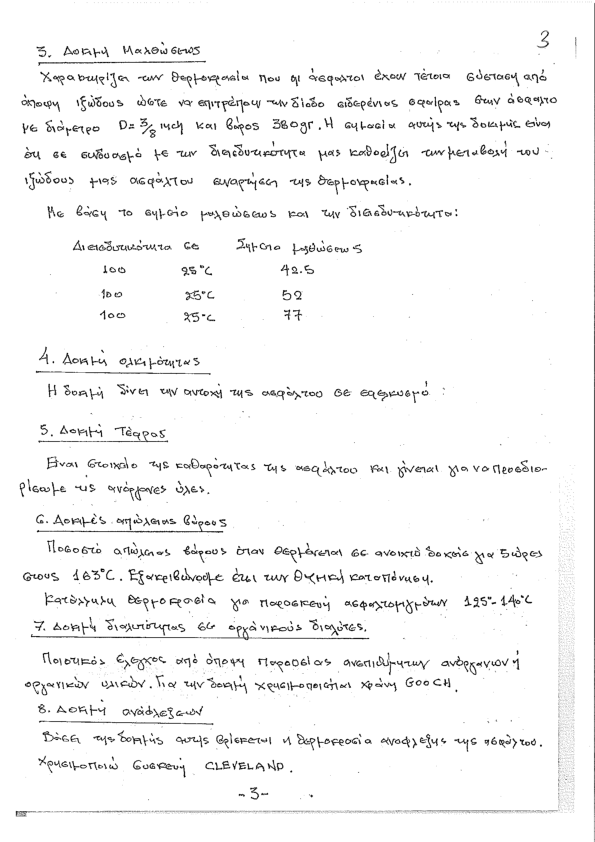 3
3. Δοκιμή Μαλθώσεως
Χαρακτηρίζει την θερμοκρασία που οι άσφαλτοι έχουν τέτοια σύσταση από
άποψη ιξώδους ώστε να επιτρέπουν την δίοδο σιδερένιας σφαίρας στην άσφαλτο
με διάμετρο D=3/8 inch και βάρος 380gr. Η σημασία αυτής της δοκιμής είναι
ότι σε συνδυασμό με την διεισδυτικότητα μας καθορίζει την μεταβολή του
ιξώδους μιας ασφάλτου συναρτήσει της θερμοκρασίας.
Με βάση το σημείο μαλθώσεως και την διεισδυτικότητα:
Διεισδυτικότητα σε Σημείο μαλθώσεως
100 25°C 42.5
100 25°C 52
100 25°C 77
4. Δοκιμή ολκιμότητας
Η δοκιμή δίνει την αντοχή της ασφάλτου σε εφελκυσμό
5. Δοκιμή Τέφρας
Είναι στοιχείο της καθαρότητας της ασφάλτου και γίνεται για να προσδιο-
ρίσωμε τις ανόργανες ύλες.
6. Δοκιμές απώλειας βάρους
Ποσοστό απώλειας βάρους όταν θερμαίνεται σε ανοιχτό δοχείο για 5 ώρες
στους 163°C. Εξακριβώνουμε έτσι την θερμική καταπόνηση.
Κατάλληλη θερμοκρασία για παρασκευή ασφαλτομιγμάτων 125°-140°C
7. Δοκιμή διαλυτότητας σε οργανικούς διαλύτες.
Ποιοτικός έλεγχος από άποψη παρουσίας ανεπιθύμητων ανόργανων ή
οργανικών υλικών. Για την δοκιμή χρησιμοποιείται χοάνη GOOCH.
8. Δοκιμή αναφλέξεων
Βάσει της δοκιμής αυτής βρίσκεται η θερμοκρασία αναφλεξης της ασφάλτου.
Χρησιμοποιώ συσκευή CLEVELAND.
-3-